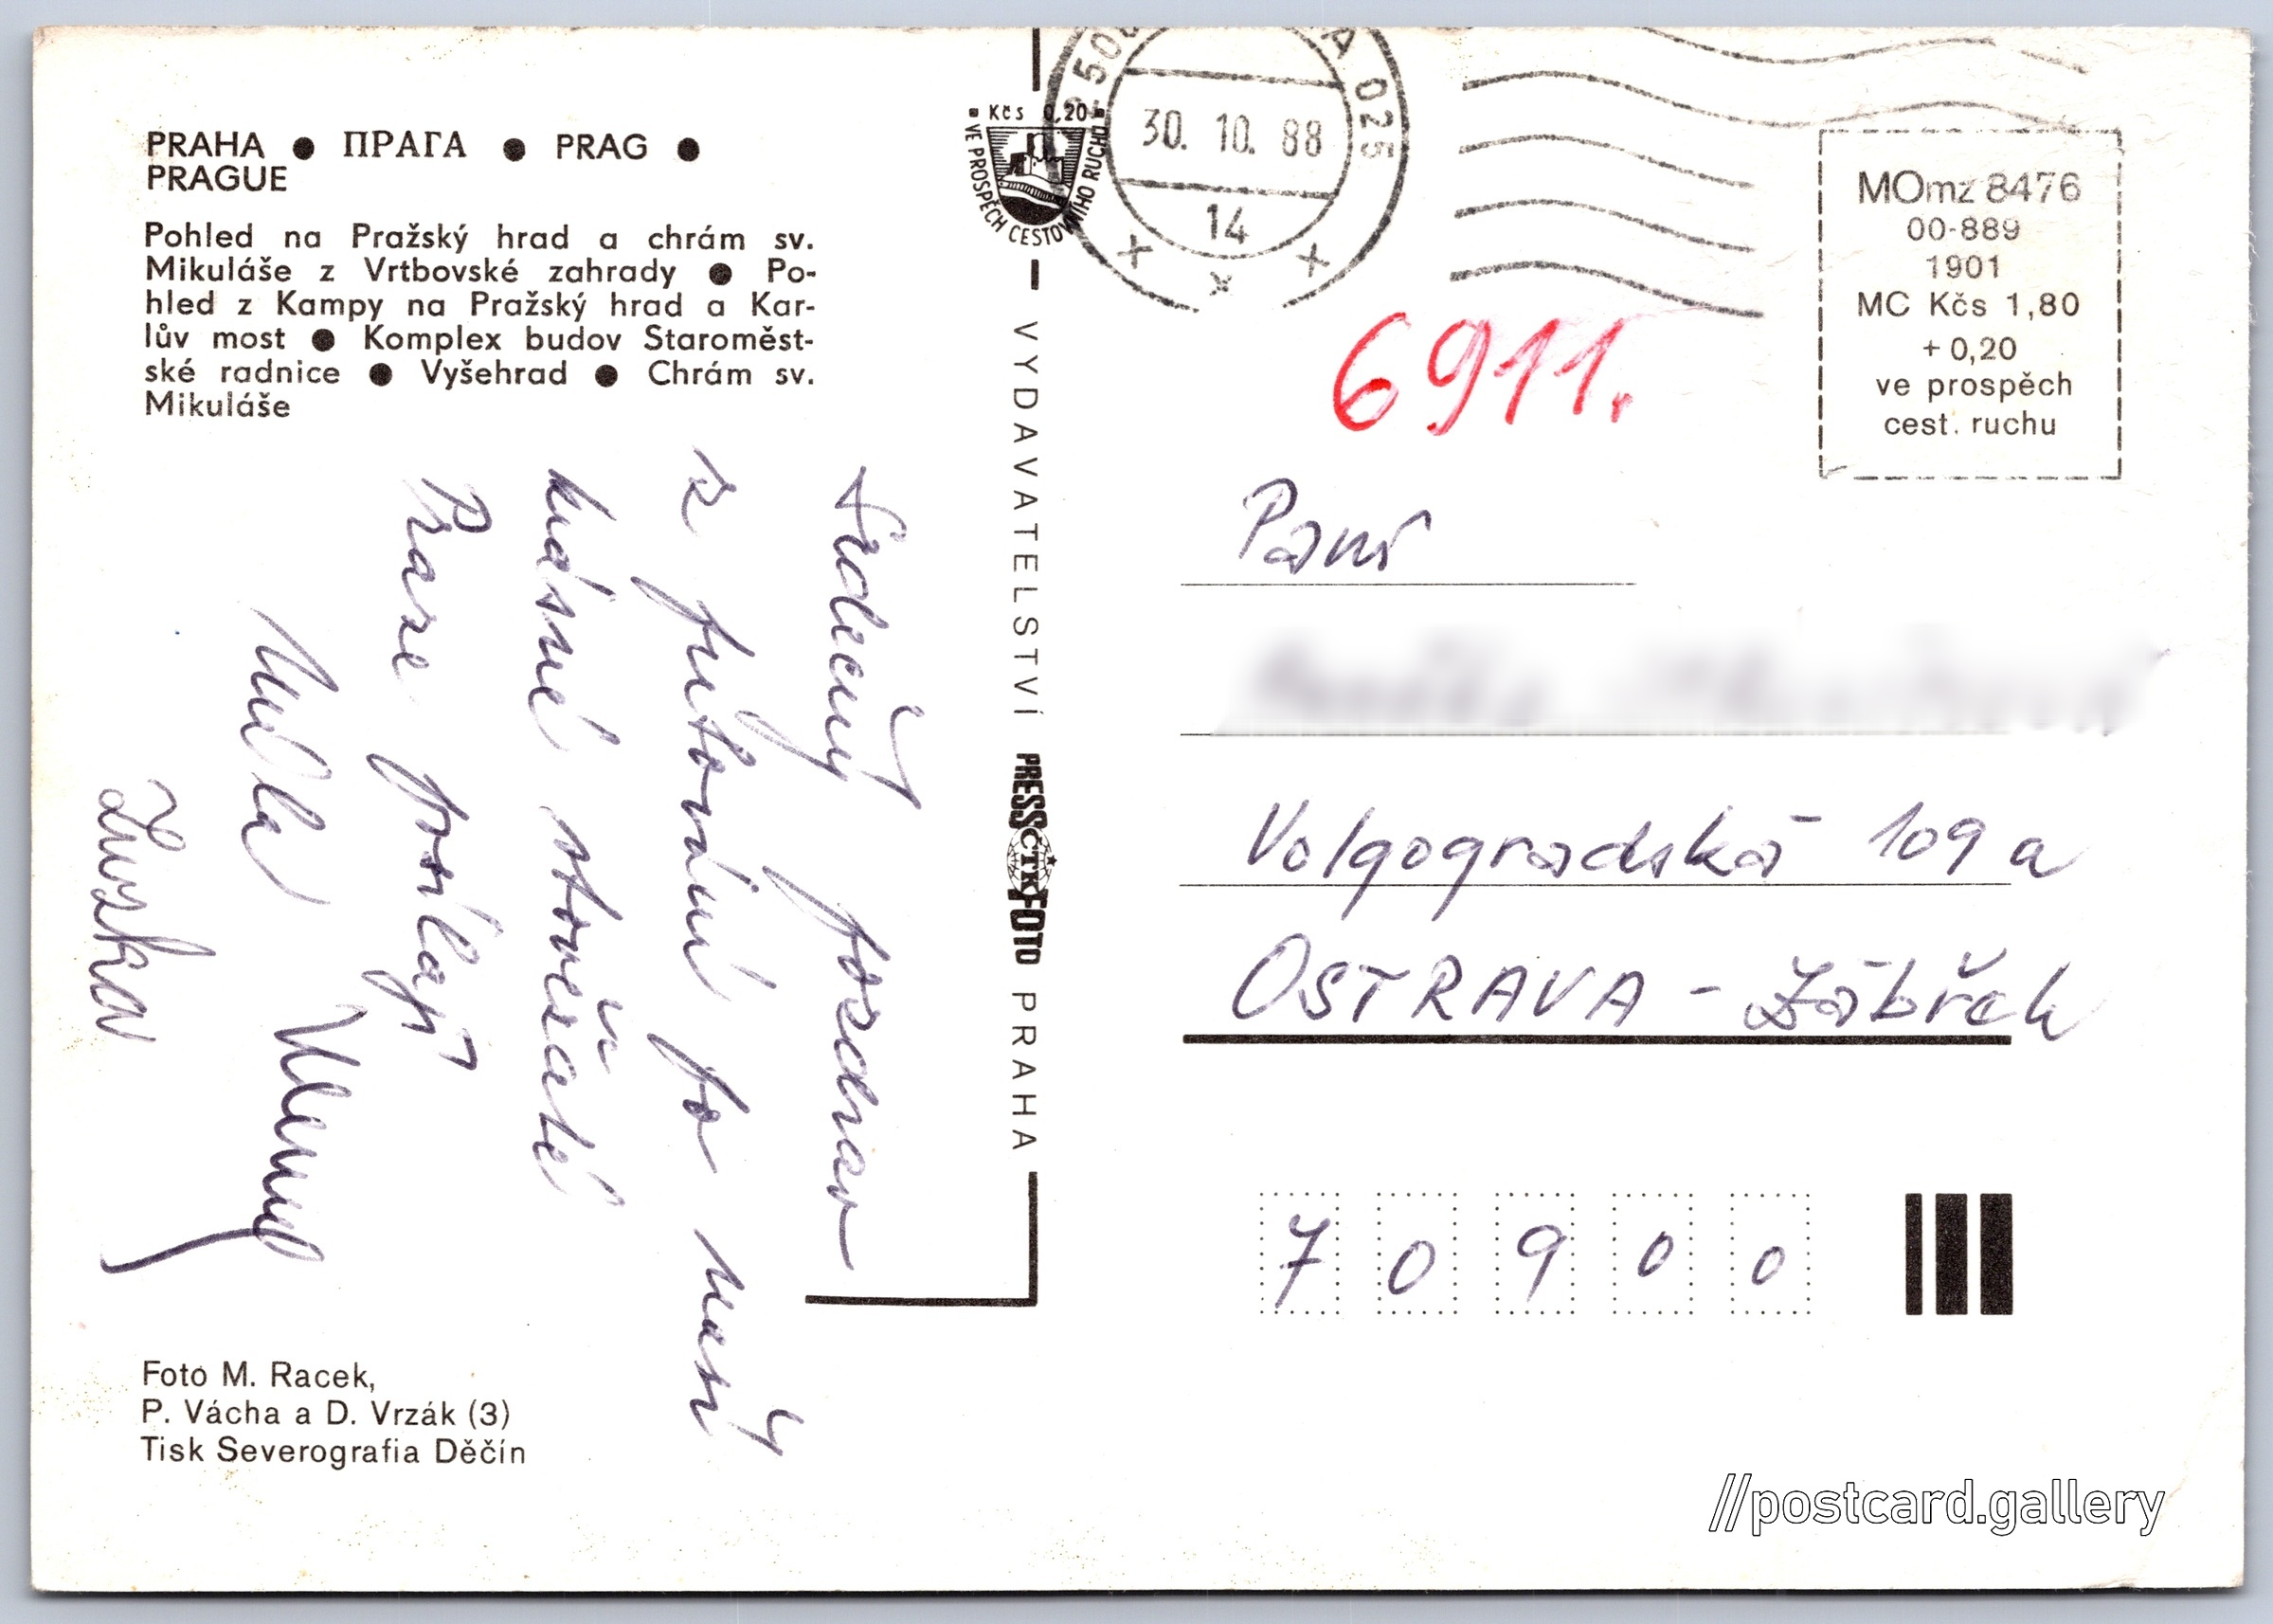 PRAHA ● ПРАГА ● PRAG ●
PRAGUE
Pohled na Pražský hrad a chrám sv.
Mikuláše z Vrtbovské zahrady ● Po-
hled z Kampy na Pražský hrad a Kar-
lův most ● Komplex budov Staroměst-
ské radnice ● Vyšehrad ● Chrám sv.
Mikuláše
Srdečný pozdrav
z putování po naší
krásné stověžaté
Praze posílají
Zuzka
Foto M. Racek,
P. Vácha a D. Vrzák (3)
Tisk Severografia Děčín
Kčs 0,20
VE PROSPĚCH CESTOVNÍHO RUCHU
VYDAVATELSTVÍ PRESSFOTO PRAHA
ČTK
025
30. 10. 88
14
MOmz 8476
00-889
1901
MC Kčs 1,80
+ 0,20
ve prospěch
cest. ruchu
6911.
Paní
Volgogradská 109 a
OSTRAVA - Zábřeh
7 0 9 0 0
//postcard.gallery